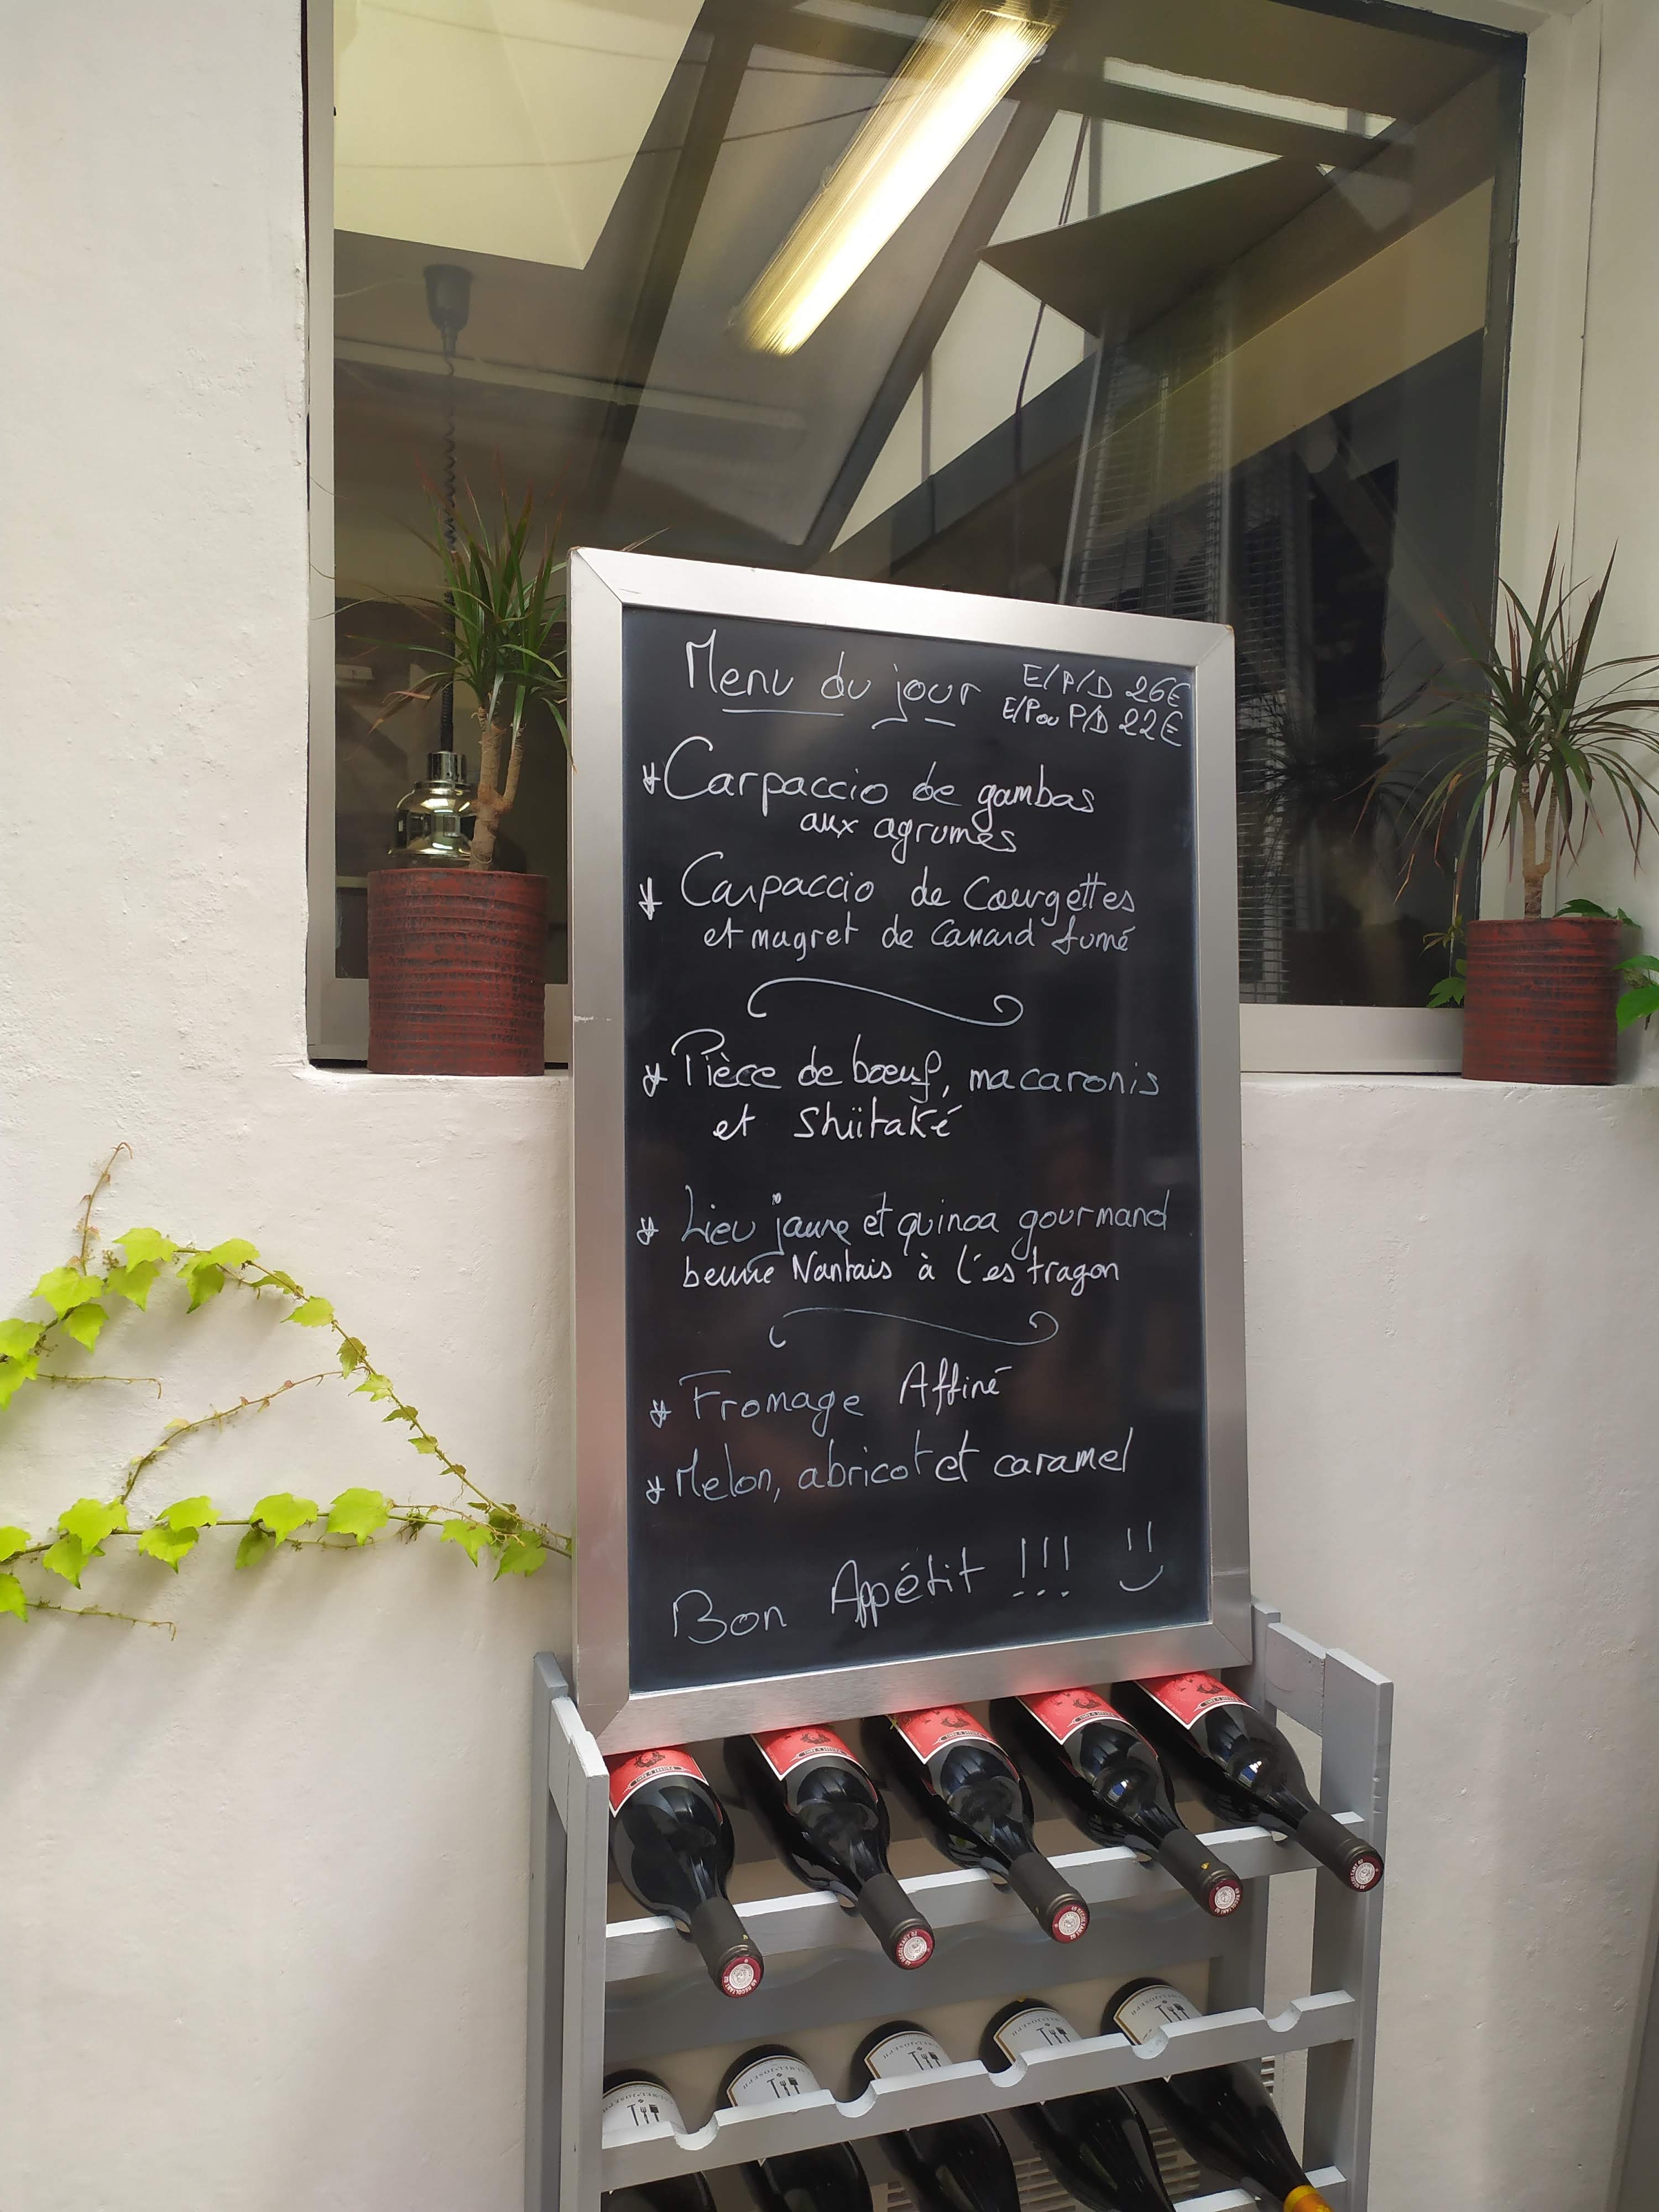 Menu du jour
E/P/D 26€
E/P ou P/D 22€
Carpaccio de gambas
aux agrumes
Carpaccio de Courgettes
et magret de Canard fumé
Pièce de bœuf, macaronis
et Shiitaké
Lieu jaune et quinoa gourmand
beurre Nantais à l'estragon
Fromage Affiné
Melon, abricot et caramel
Bon Appétit !!!